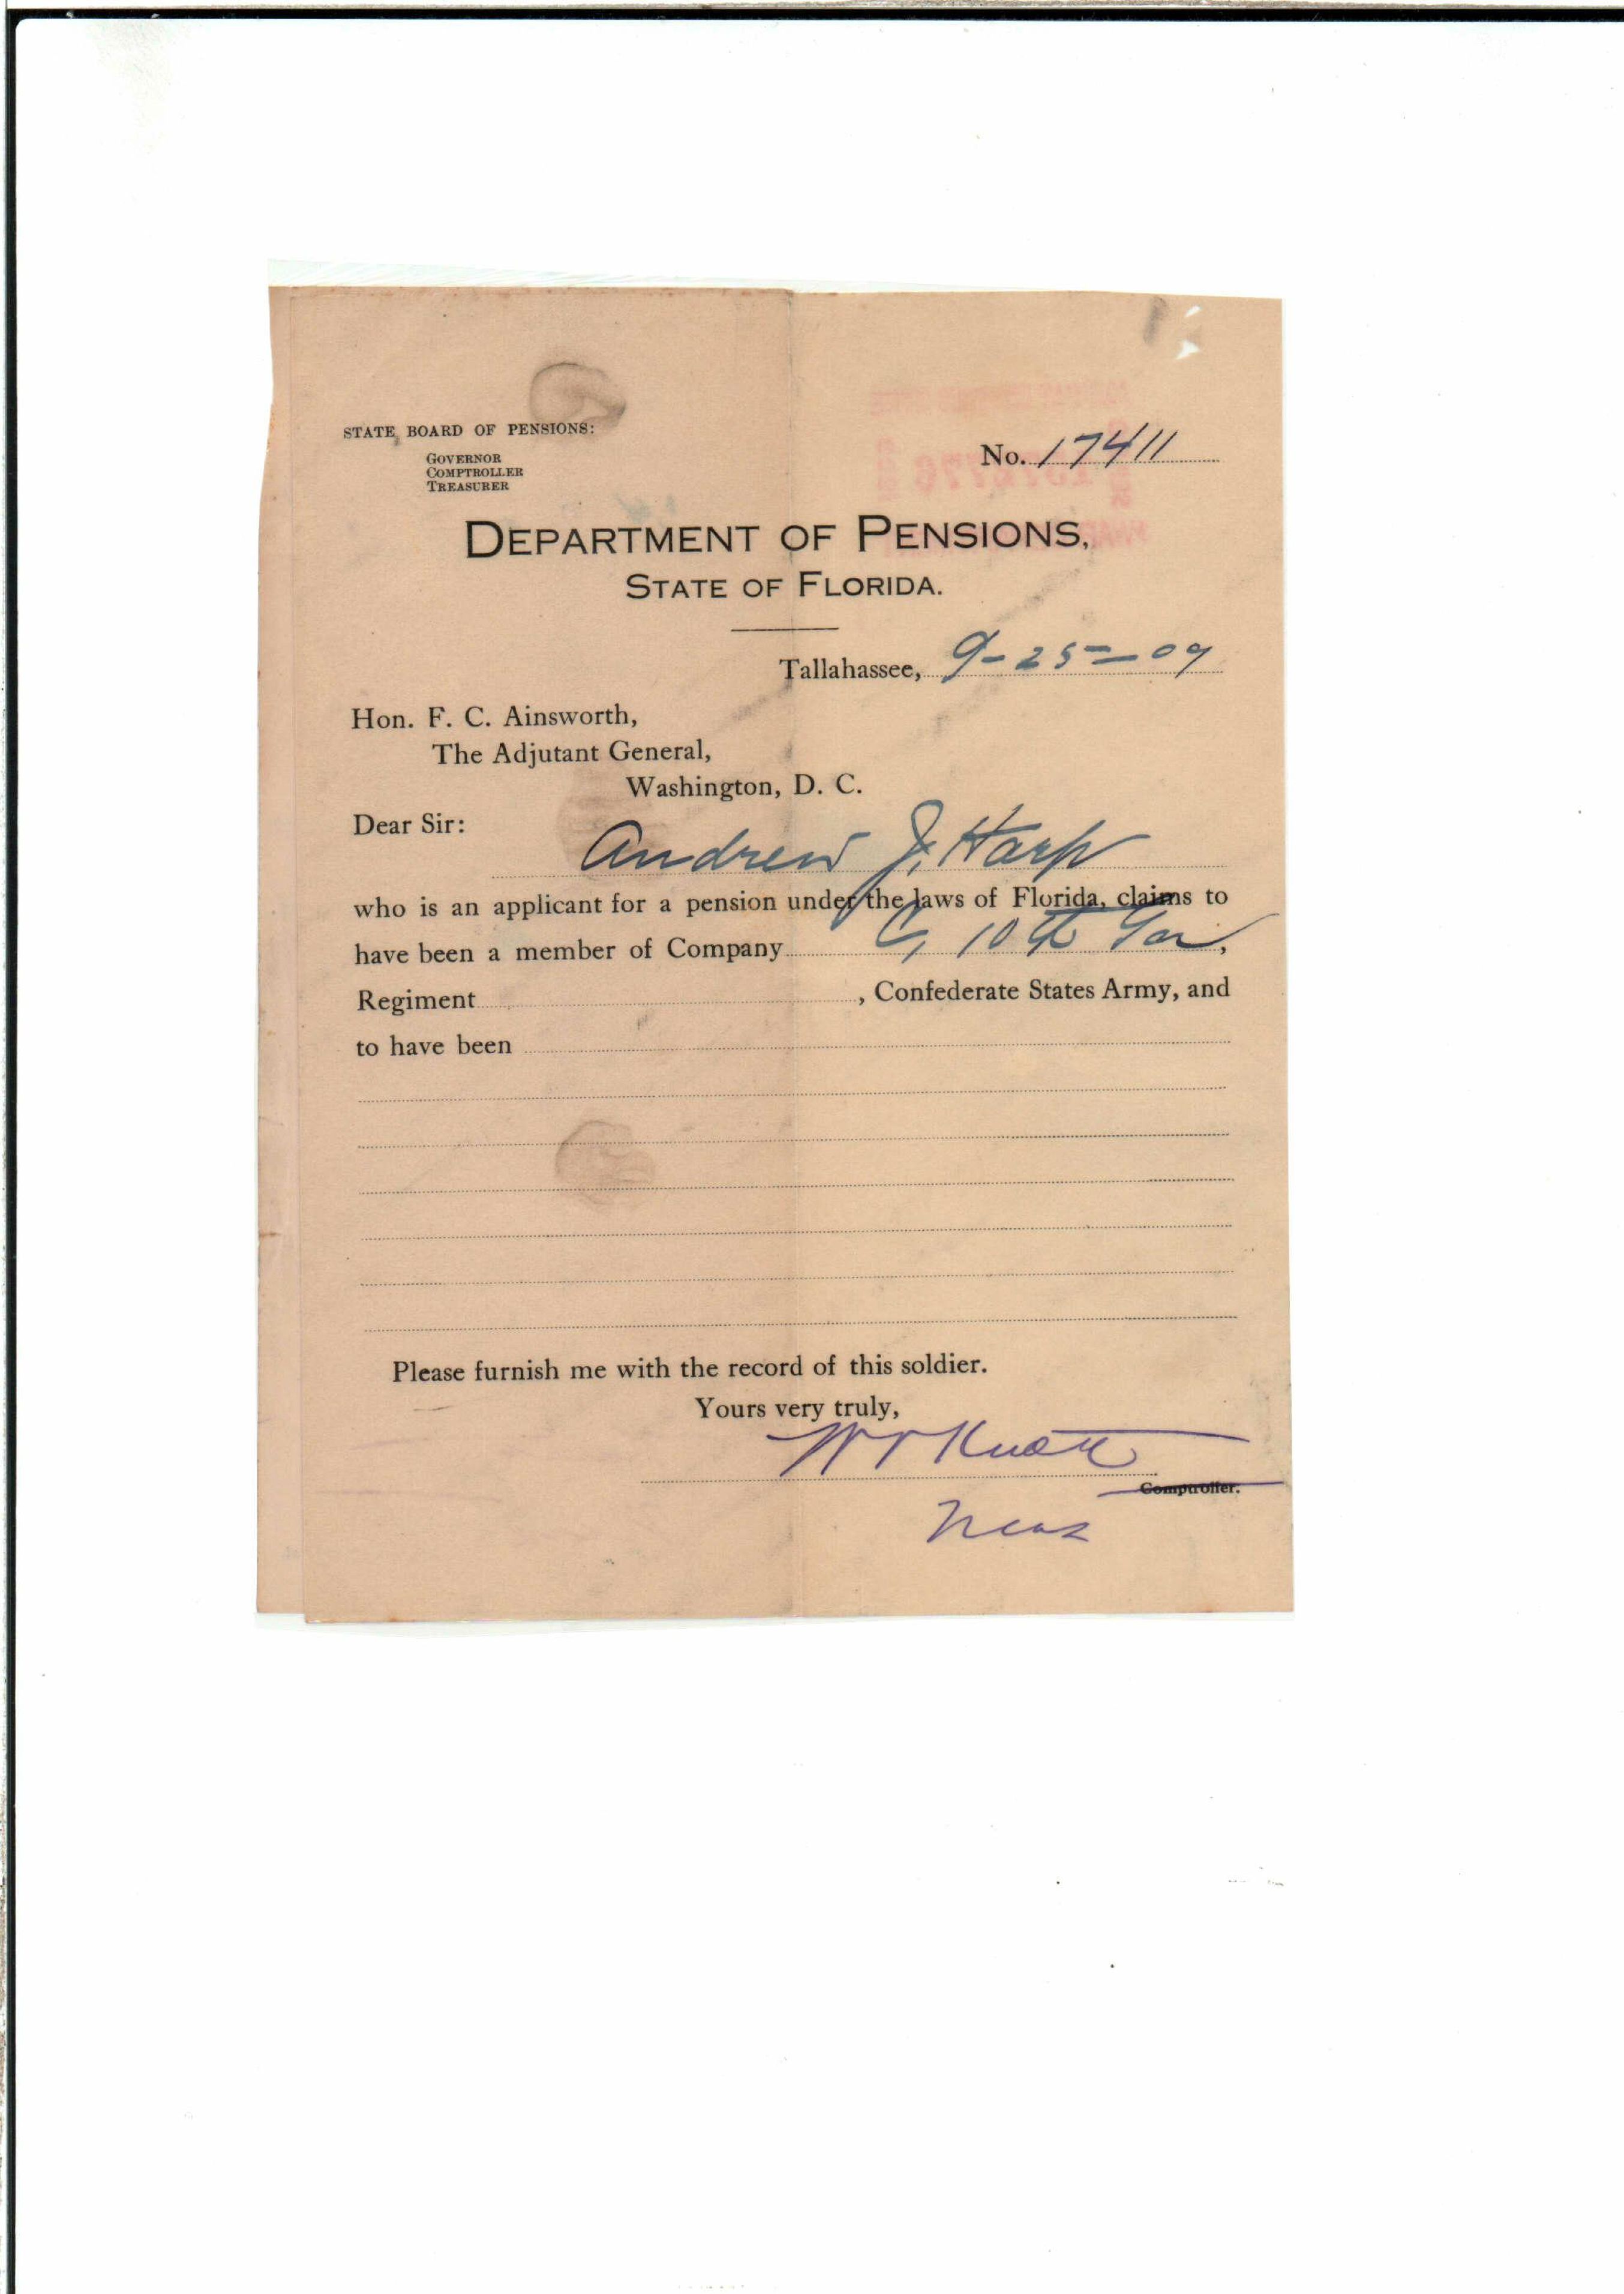 STATE BOARD OF PENSIONS:
GOVERNOR
COMPTROLLER
TREASURER
No. 17411
DEPARTMENT OF PENSIONS,
STATE OF FLORIDA.
Tallahassee, 9-25-09
Hon. F. C. Ainsworth,
The Adjutant General,
Washington, D. C.
Dear Sir:
Andrew J. Harp
who is an applicant for a pension under the laws of Florida, claims to
have been a member of Company G, 10th Ga,
Regiment , Confederate States Army, and
to have been
Please furnish me with the record of this soldier.
Yours very truly,
W V Knott
Comptroller.
Treas